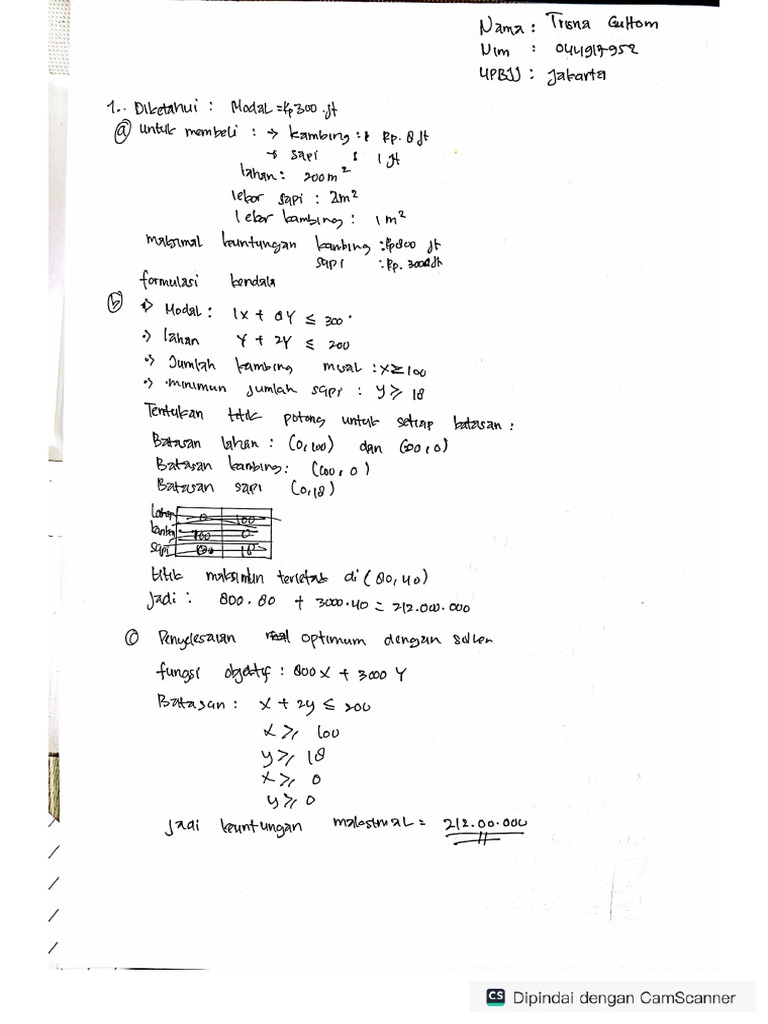 Nama : Trisna Gultom
Nim : 044917952
UPBJJ : Jakarta
1.. Diketahui : Modal = Rp 300 jt
a untuk membeli : → kambing : Rp. 8 jt
→ sapi : 1 jt
lahan : 200 m²
lebar sapi : 2m²
lebar kambing : 1 m²
maksimal keuntungan kambing : Rp 800 jt
sapi : Rp. 3000 jt
formulasi kendala
b → Modal : 1x + 8Y ≤ 300
→ lahan Y + 2Y ≤ 200
→ Jumlah kambing : x ≥ 100
→ minimun jumlah sapi : y ≥ 18
Tentukan titik potong untuk setiap batasan :
Batasan lahan : (0,100) dan (200,0)
Batasan kambing : (100,0)
Batasan sapi (0,18)
Lahan 0 100
kambing 100 0
sapi 18
titik maksimun terletak di (80,40)
Jadi : 800.80 + 3000.40 = 212.000.000
c Penyelesaian optimum dengan solver
fungsi objektif : 800X + 3000 Y
Batasan : x + 2y ≤ 200
x ≥ 100
y ≥ 18
x ≥ 0
y ≥ 0
Jadi keuntungan maksimal = 212.00.000
CS Dipindai dengan CamScanner